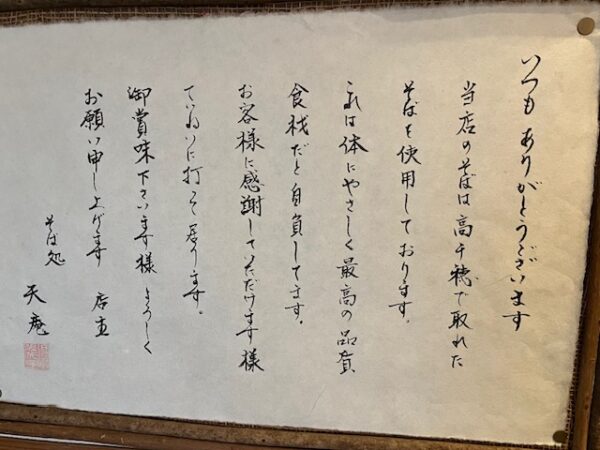 いつもありがとうございます
当店のそばは高千穂で取れた
そばを使用しております。
これは体にやさしく最高の品質
食材だと自負してます。
お客様に感謝していただけます様
ていねいに打って居ります。
御賞味下さいます様よろしく
お願い申し上げます 店主
そば処
天庵